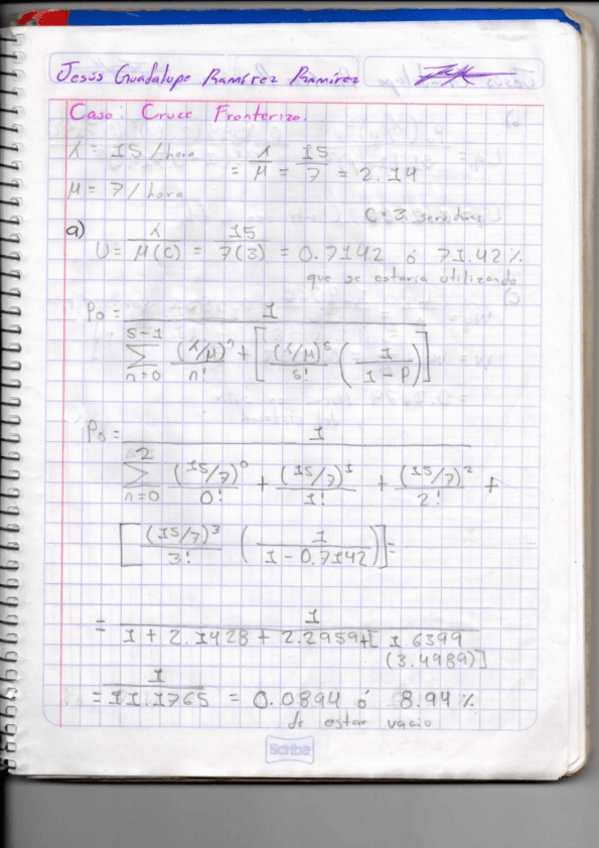 Jesús Guadalupe Ramírez Ramírez
Caso: Cruce Fronterizo.
λ = 15/hora = λ/μ = 15/7 = 2.14
μ = 7/hora
C = 3 servidores
a) U = λ/μ(c) = 15/7(3) = 0.7142 ó 71.42%
que se estaria utilizando
P₀ = 1 / s-1 Σ n=0 (λ/μ)ⁿ/n! + [(λ/μ)ˢ/s! (1/1-P)]
P₀ = 1 / 2 Σ n=0 (15/7)⁰/0! + (15/7)¹/1! + (15/7)²/2! +
[(15/7)³/3! (1/1-0.7142)] =
= 1 / 1 + 2.1428 + 2.2959 + [1.6399
(3.4989)]
= 1/11.1765 = 0.0894 ó 8.94%
de estar vacio
Scribe